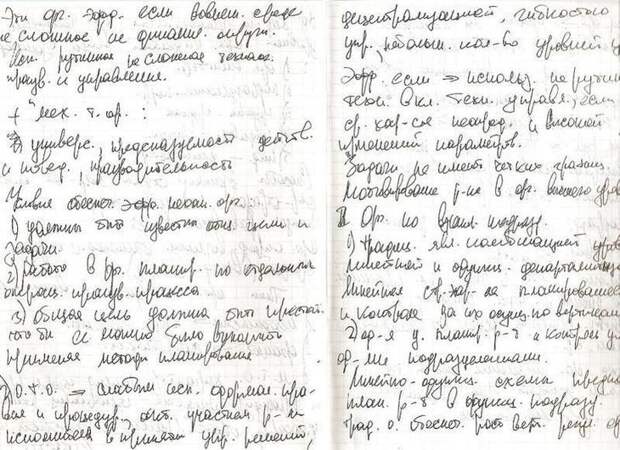 Эти ор. эфф. если во внеш. среде
не сложное не динамич. окруж.
Исп. рутинное не сложное технол.
произв. и управления.
+ "мех. т. ор. :
универс., предсказуемость действ.
и повед., производительность
Условия обеспеч. эфф. механ. ор.
1) должны быть известны общ. цели и
задачи
2) работа в ор. планир. по отдельным
операц. произв. процесса
3) общая цель должна быть простой,
что бы её можно было выполнить
применяя методы планирования
2) О.т.О. => слабым исп. формал. пра-
вил и процедур, участия р-ы
исполнителя в принятии упр. решений,
децентрализацией, гибкостью
упр., небольш. кол-во уровней у
Эфф. если => использ. не рутин
техн. вкл. техн. управл., если
ср. хар-ся неопред. и высокой
изменений параметров.
Задачи не имеют четких границ.
Мотивирование р-ка в ор. высшего уров
II Ор. по взаим. подразд.
1) традиц. явл. комбинацией уров
линейной и функц. департаментиза
Линейная стр. хар-ся планирование
и контроля за их осущ. по вертикали
2) ор-я у. планир. р-т и контроль у
ор-ние подразделениями.
Линейно-функц. схемы предпо
план. р-т в функц. подразд.
трад. о. обеспеч. рост верт.